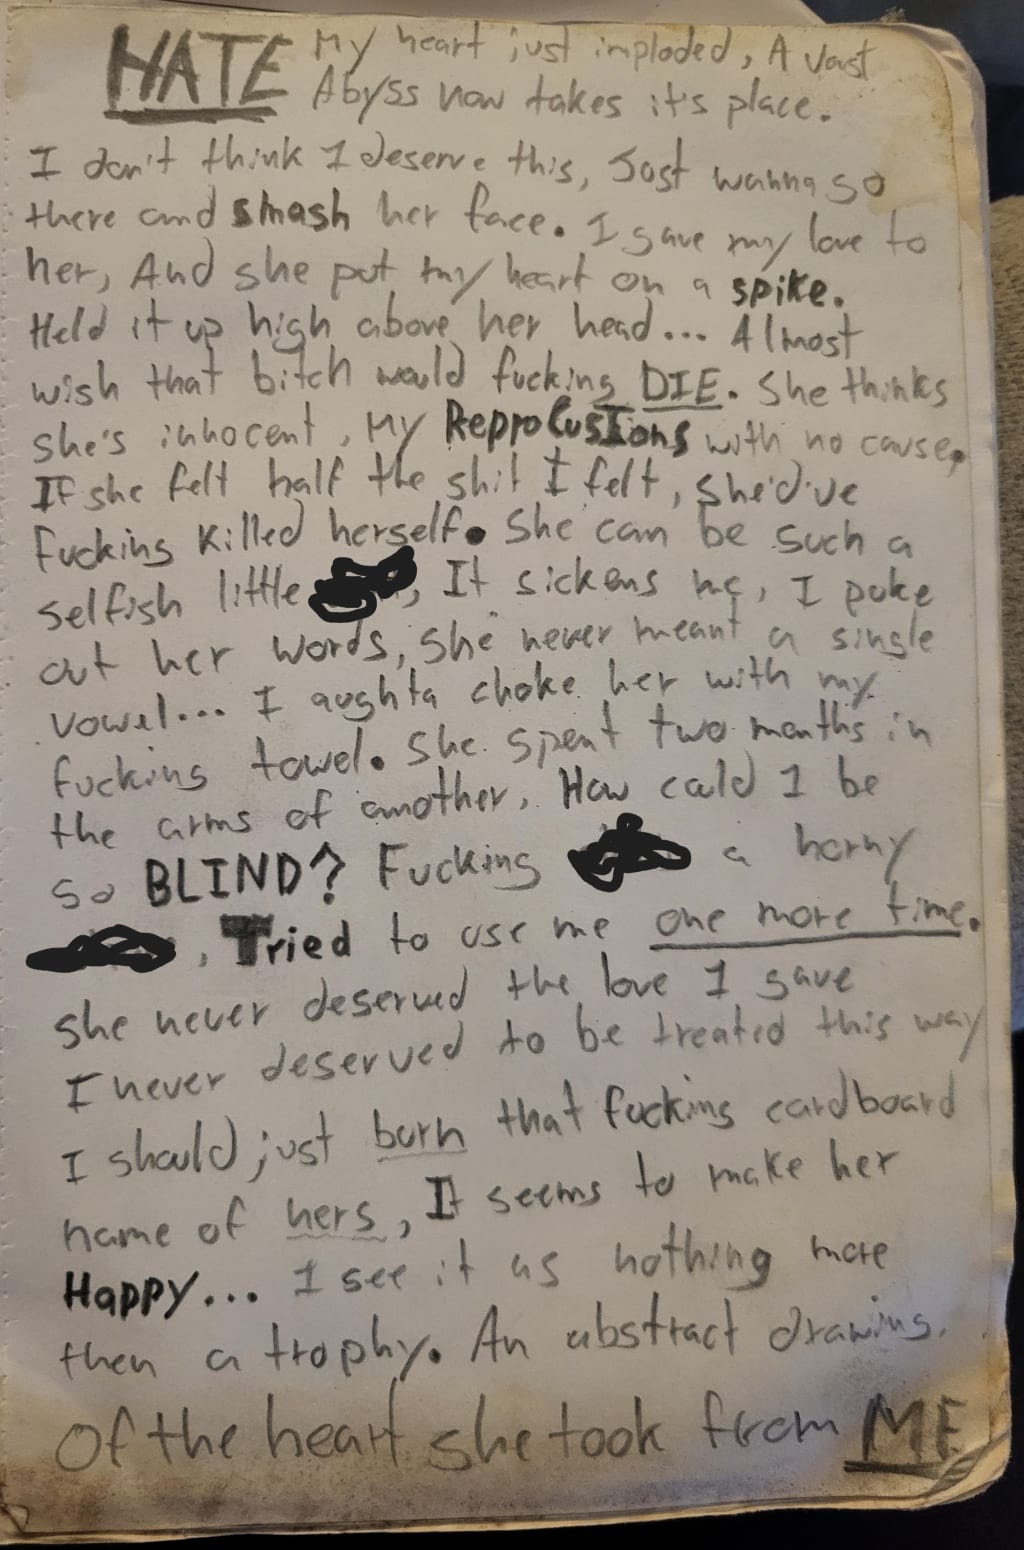 HATE My heart just imploded, A vast
Abyss now takes it's place.
I don't think I deserve this, Just wanna go
there and smash her face. I gave my love to
her, And she put my heart on a spike.
Held it up high above her head... Almost
wish that bitch would fucking DIE. She thinks
she's innocent, My ReppoCussions with no cause,
If she felt half the shit I felt, she'd've
fucking killed herself. She can be such a
selfish little , It sickens me, I puke
out her words, she never meant a single
vowel... I aughta choke her with my
fucking towel. She spent two months in
the arms of another. How could I be
so BLIND? Fucking a horny
, Tried to use me one more time.
she never deserved the love I gave
I never deserved to be treated this way
I should just burn that fucking cardboard
name of hers, It seems to make her
Happy... I see it as nothing more
then a trophy. An abstract drawing.
Of the heart she took from ME